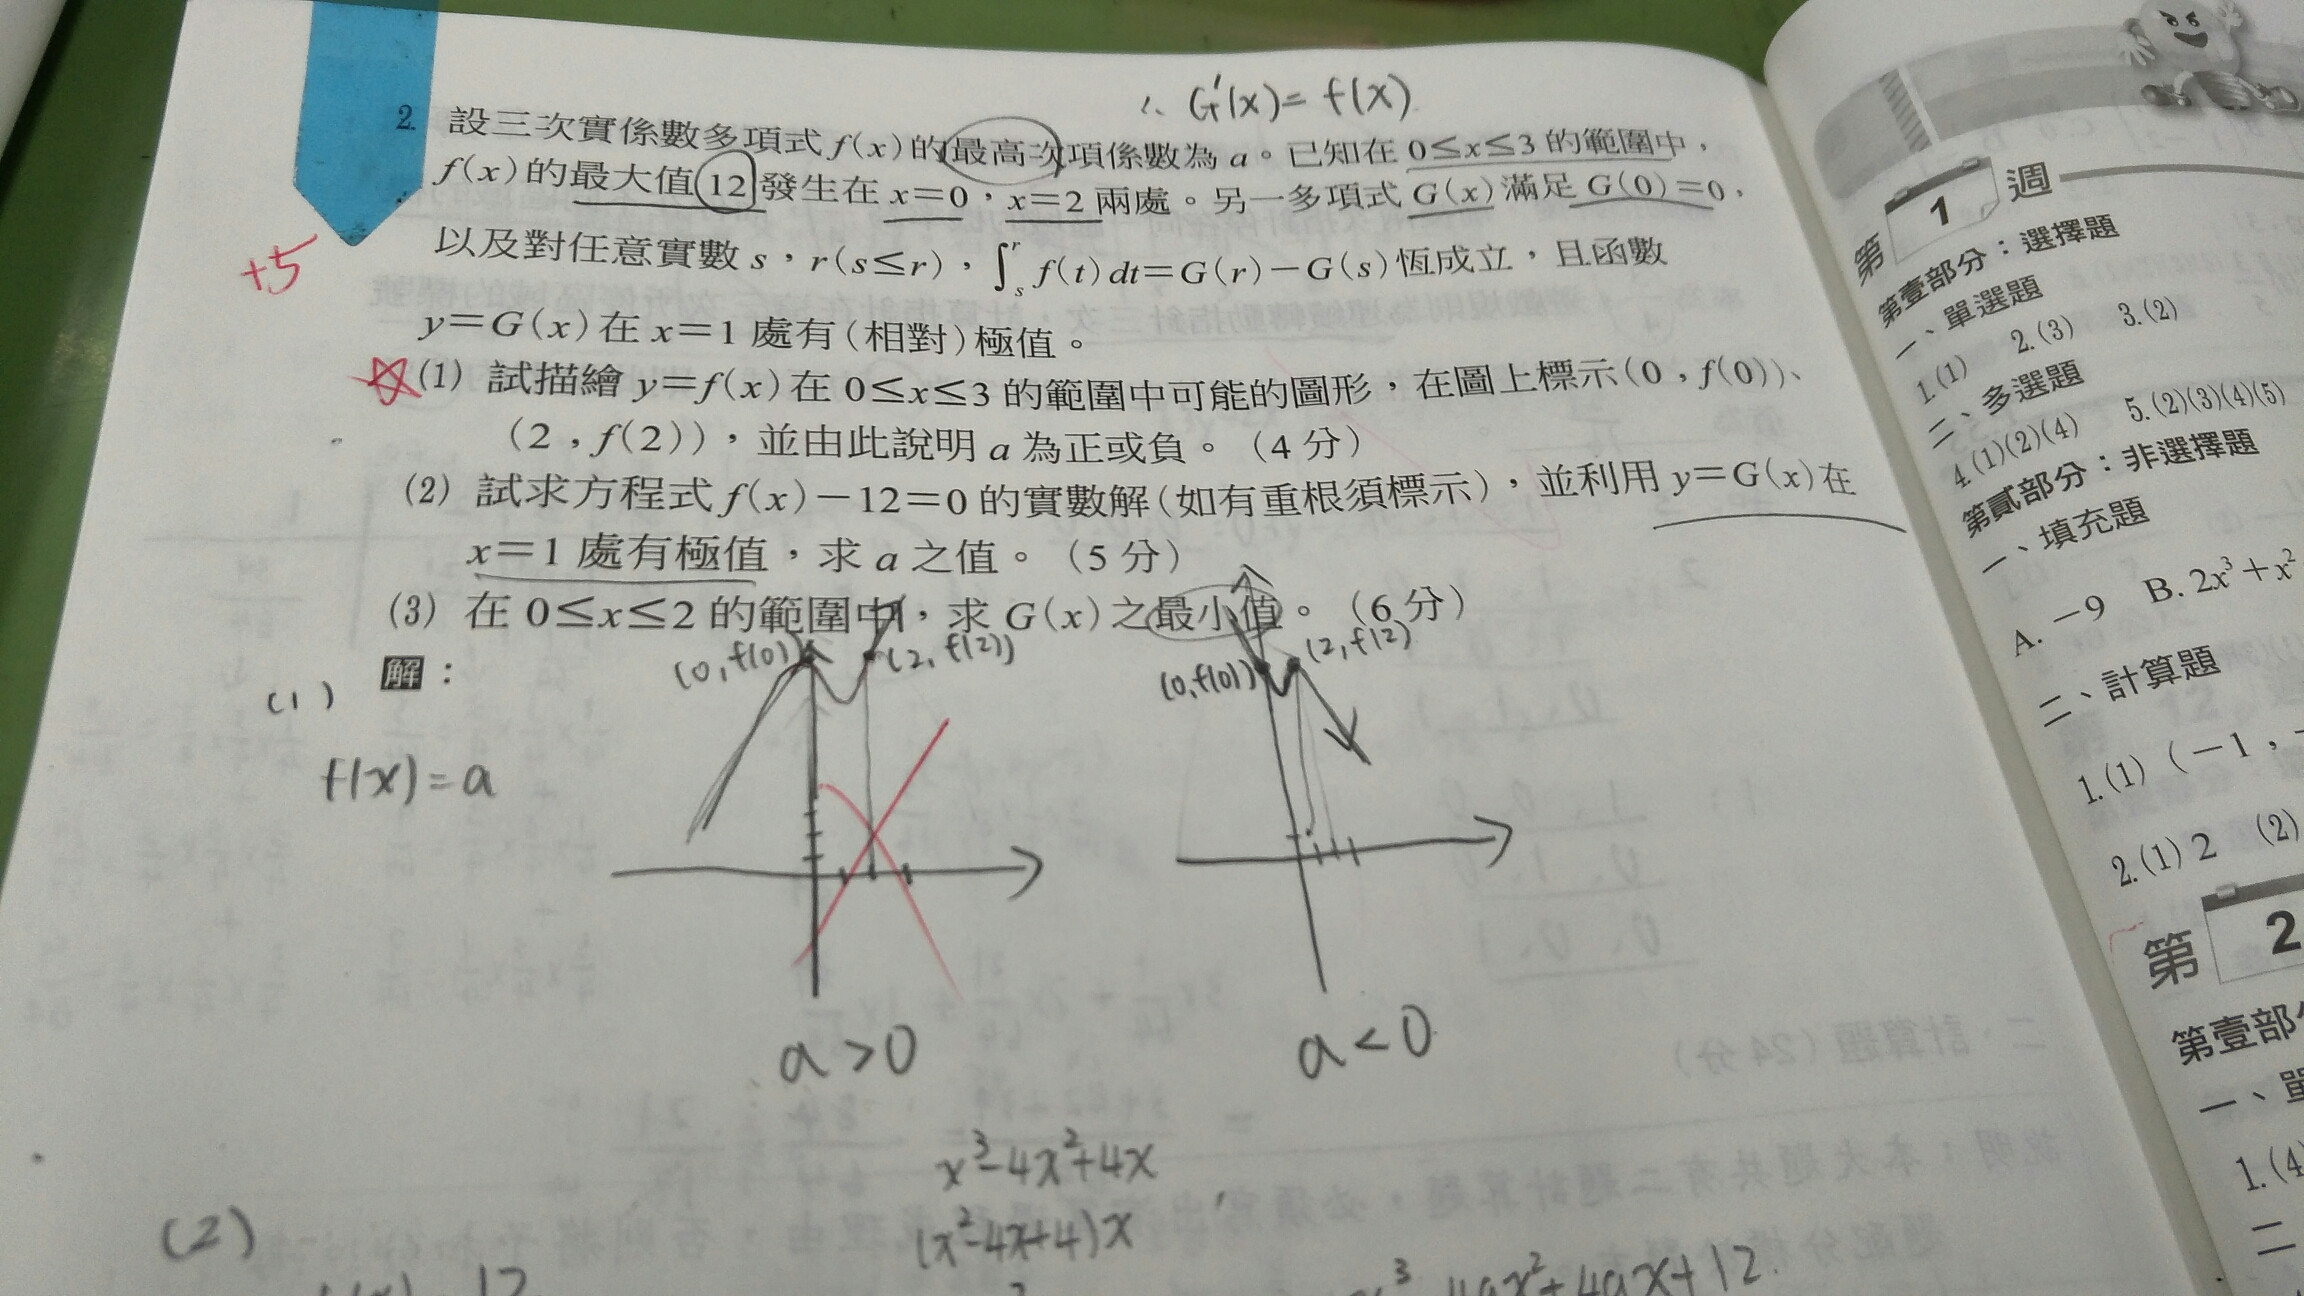 ∴ G'(x)= f(x)
2. 設三次實係數多項式 f(x) 的最高次項係數為 a。已知在 0≤x≤3 的範圍中，
f(x) 的最大值 12 發生在 x=0，x=2 兩處。另一多項式 G(x) 滿足 G(0)=0，
以及對任意實數 s，r(s≤r)，∫ₛʳ f(t)dt=G(r)−G(s) 恆成立，且函數
y=G(x) 在 x=1 處有(相對)極值。
+5
☆(1) 試描繪 y=f(x) 在 0≤x≤3 的範圍中可能的圖形，在圖上標示(0，f(0))、
(2，f(2))，並由此說明 a 為正或負。(4 分)
(2) 試求方程式 f(x)−12=0 的實數解(如有重根須標示)，並利用 y=G(x) 在
x=1 處有極值，求 a 之值。(5 分)
(3) 在 0≤x≤2 的範圍中，求 G(x) 之最小值。(6 分)
解：
(1)
f(x)=a
(0,f(0)) (2,f(2))
(0,f(0)) (2,f(2)
a>0
a<0
x³-4x²+4x
(x²-4x+4)x
(2)
4ax²+4ax+12
第 1 週
第壹部分：選擇題
一、單選題
1.(1) 2.(3) 3.(2)
二、多選題
4.(1)(2)(4) 5.(2)(3)(4)(5)
第貳部分：非選擇題
一、填充題
A. −9 B. 2x³+x²
二、計算題
1.(1) (−1，
2.(1) 2 (2)
第 2
第壹部
一、單
1.(4
二
二、計算題（24 分）